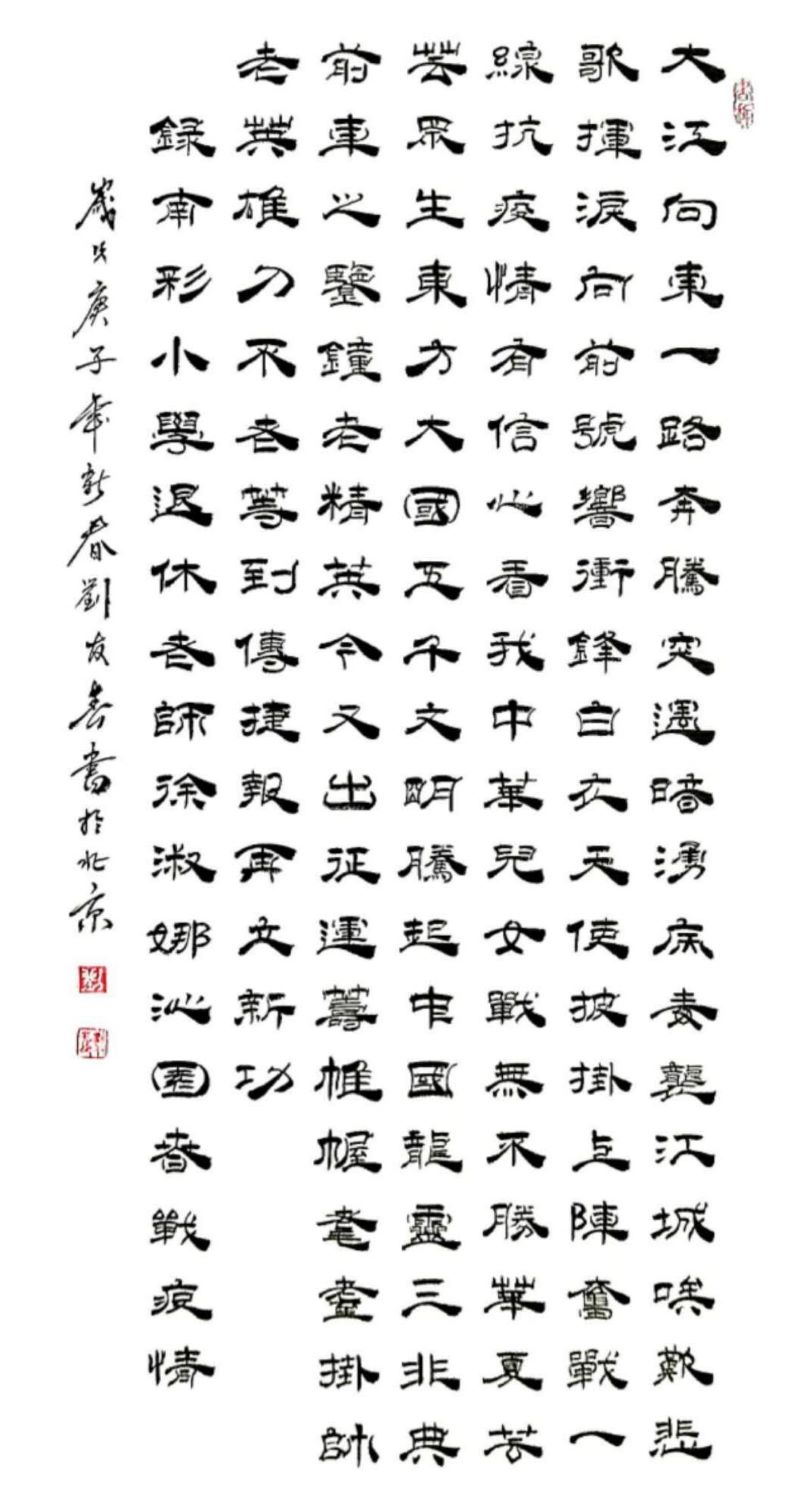 大江向東一路奔騰突遇暗湧病毒襲江城唉歎悲
歌揮淚向前號響衝鋒白衣天使披掛上陣奮戰一
線抗疫情有信心看我中華兒女戰無不勝華夏芸
芸眾生東方大國五千文明騰起中國龍靈三非典
前車之鑒鐘老精英今又出征運籌帷幄耄耋掛帥
老英雄刀不老等到傳捷報再立新功
錄南彩小學退休老師徐淑娜沁園春戰疫情
歲次庚子年新春劉友善書於北京